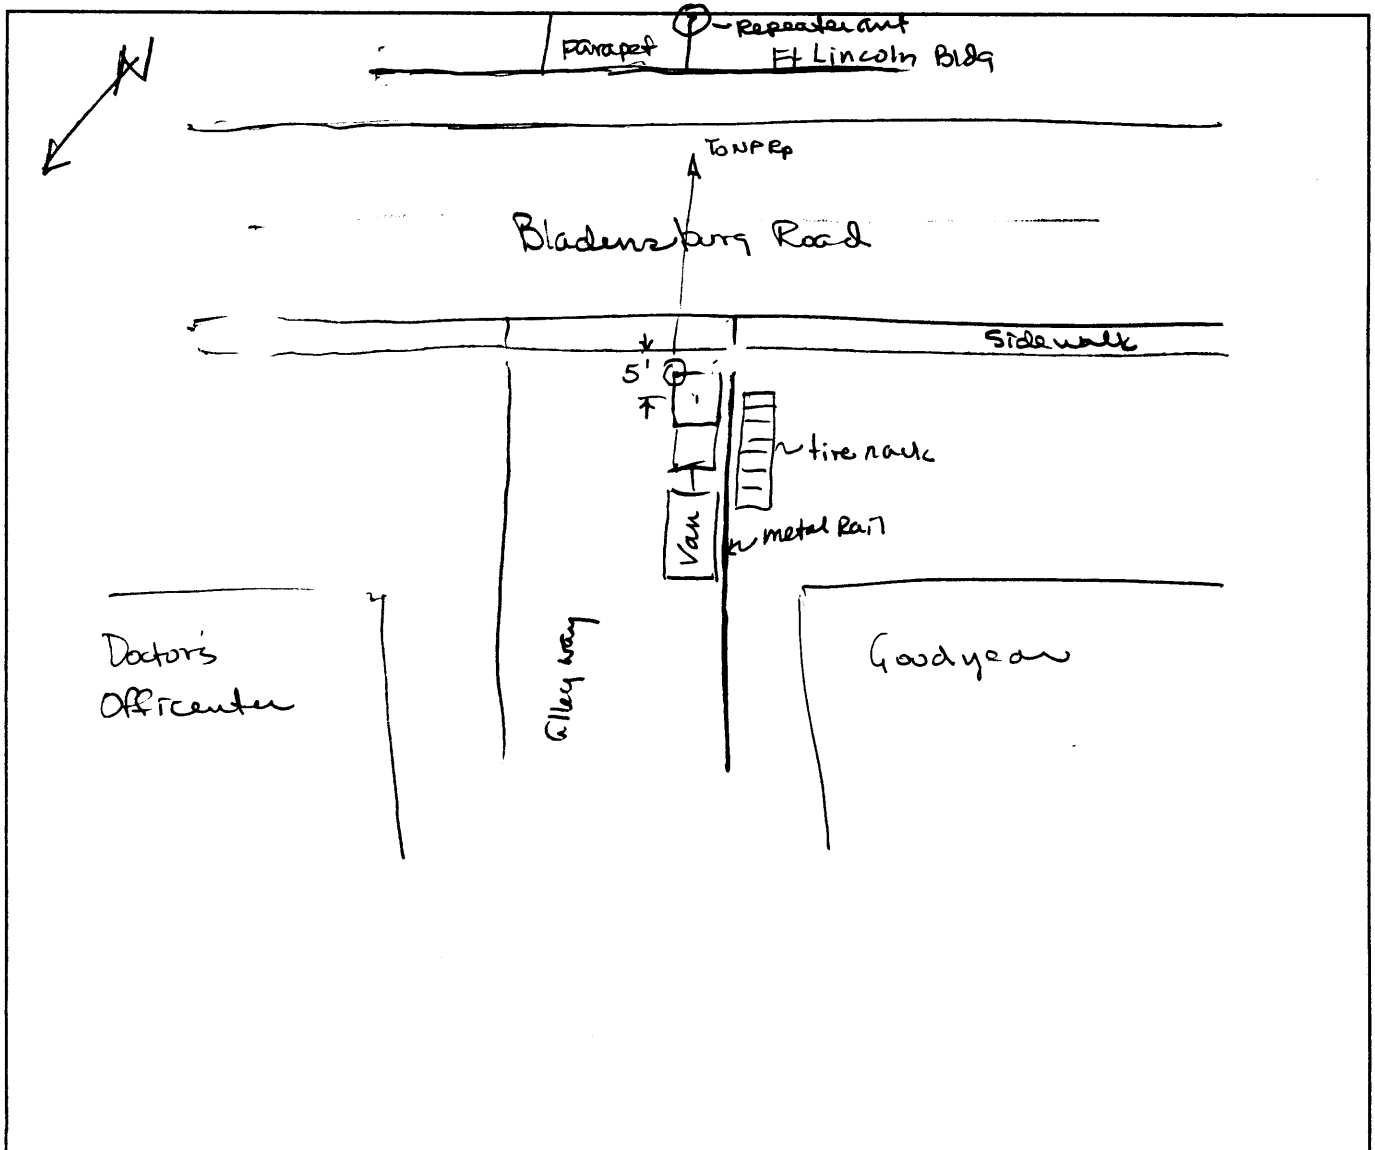 N
Parapet
Repeater ant
Ft Lincoln Bldg
To NP Rp
Bladensburg Road
Sidewalk
5'
tire rack
Van
metal Rail
Doctor's
Officenter
alley way
Goodyear